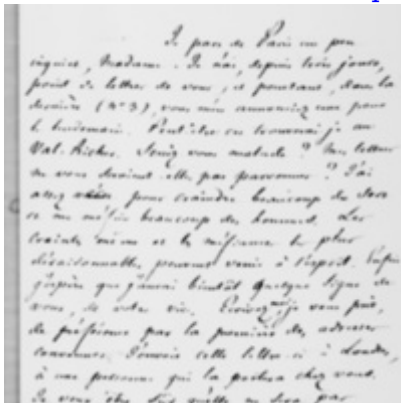 Je pars de Paris un peu
inquiet, Madame. Je n'ai, depuis trois jours,
point de lettre de vous, et pourtant, dans la
dernière (n° 3), vous m'en annonciez une pour
le lendemain. Peut-être en trouverai-je au
Val-Richer. Seriez vous malade ? Mes lettres
ne vous seraient-elles pas parvenues ? J'ai
assez pour craindre beaucoup du sort
et me méfier beaucoup des hommes. Les
craintes même et les méfiances les plus
déraisonnables peuvent venir à l'esprit. Enfin
j'espère que j'aurai bientôt quelque signe de
vous, de votre vie. Ecrivez-moi je vous prie,
de préférence par la première des adresses
convenues. J'envoie cette lettre-ci à Londres,
à une personne qui la portera chez vous.
Je veux être sûr qu'elle ne sera pas